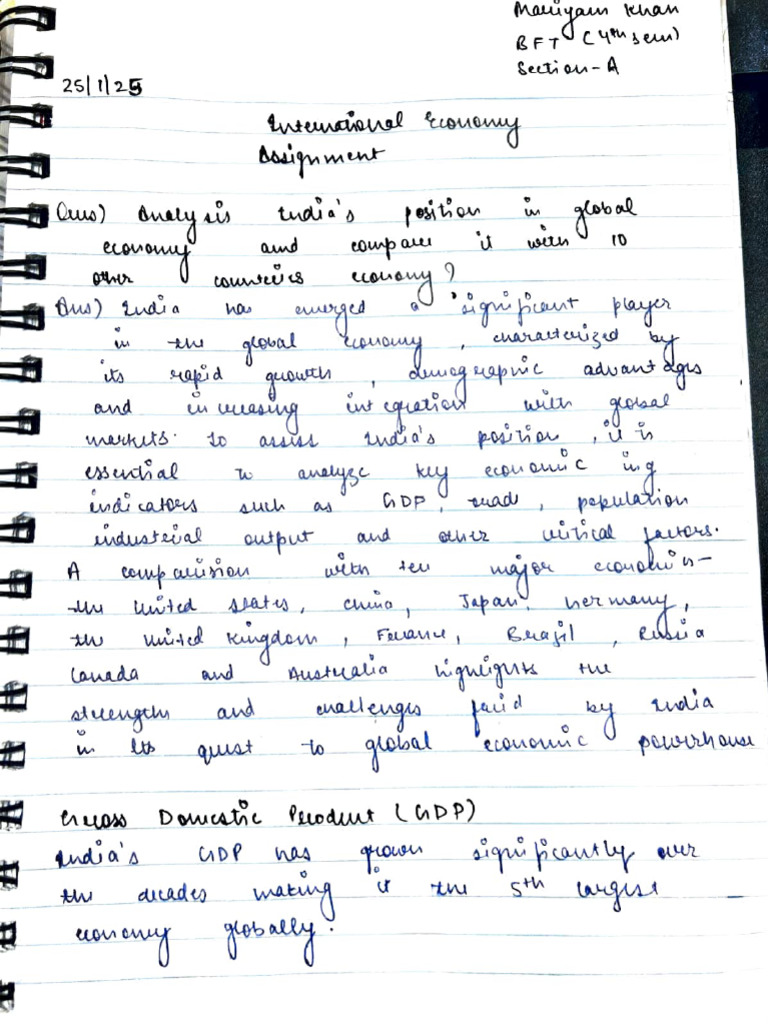 Mariyam Khan
BFT (4th sem)
Section-A
25/1/25
International Economy
Assignment
Ques) Analysis India's position in global
economy and compare it with 10
other countries economy?
Ans) India has emerged a significant player
in the global economy, characterized by
its rapid growth, demographic advantages
and increasing integration with global
markets. To assess India's position, it is
essential to analyze key economic ing
indicators such as GDP, trade, population
industrial output and other critical factors.
A comparision with ten major economies-
the United States, China, Japan, Germany,
the United Kingdom, France, Brazil, Russia
Canada and Australia highlights the
strengths and challenges faced by India
in its quest to global economic powerhouse
Gross Domestic Product (GDP)
India's GDP has grown significantly over
the decades making it the 5th largest
economy globally.